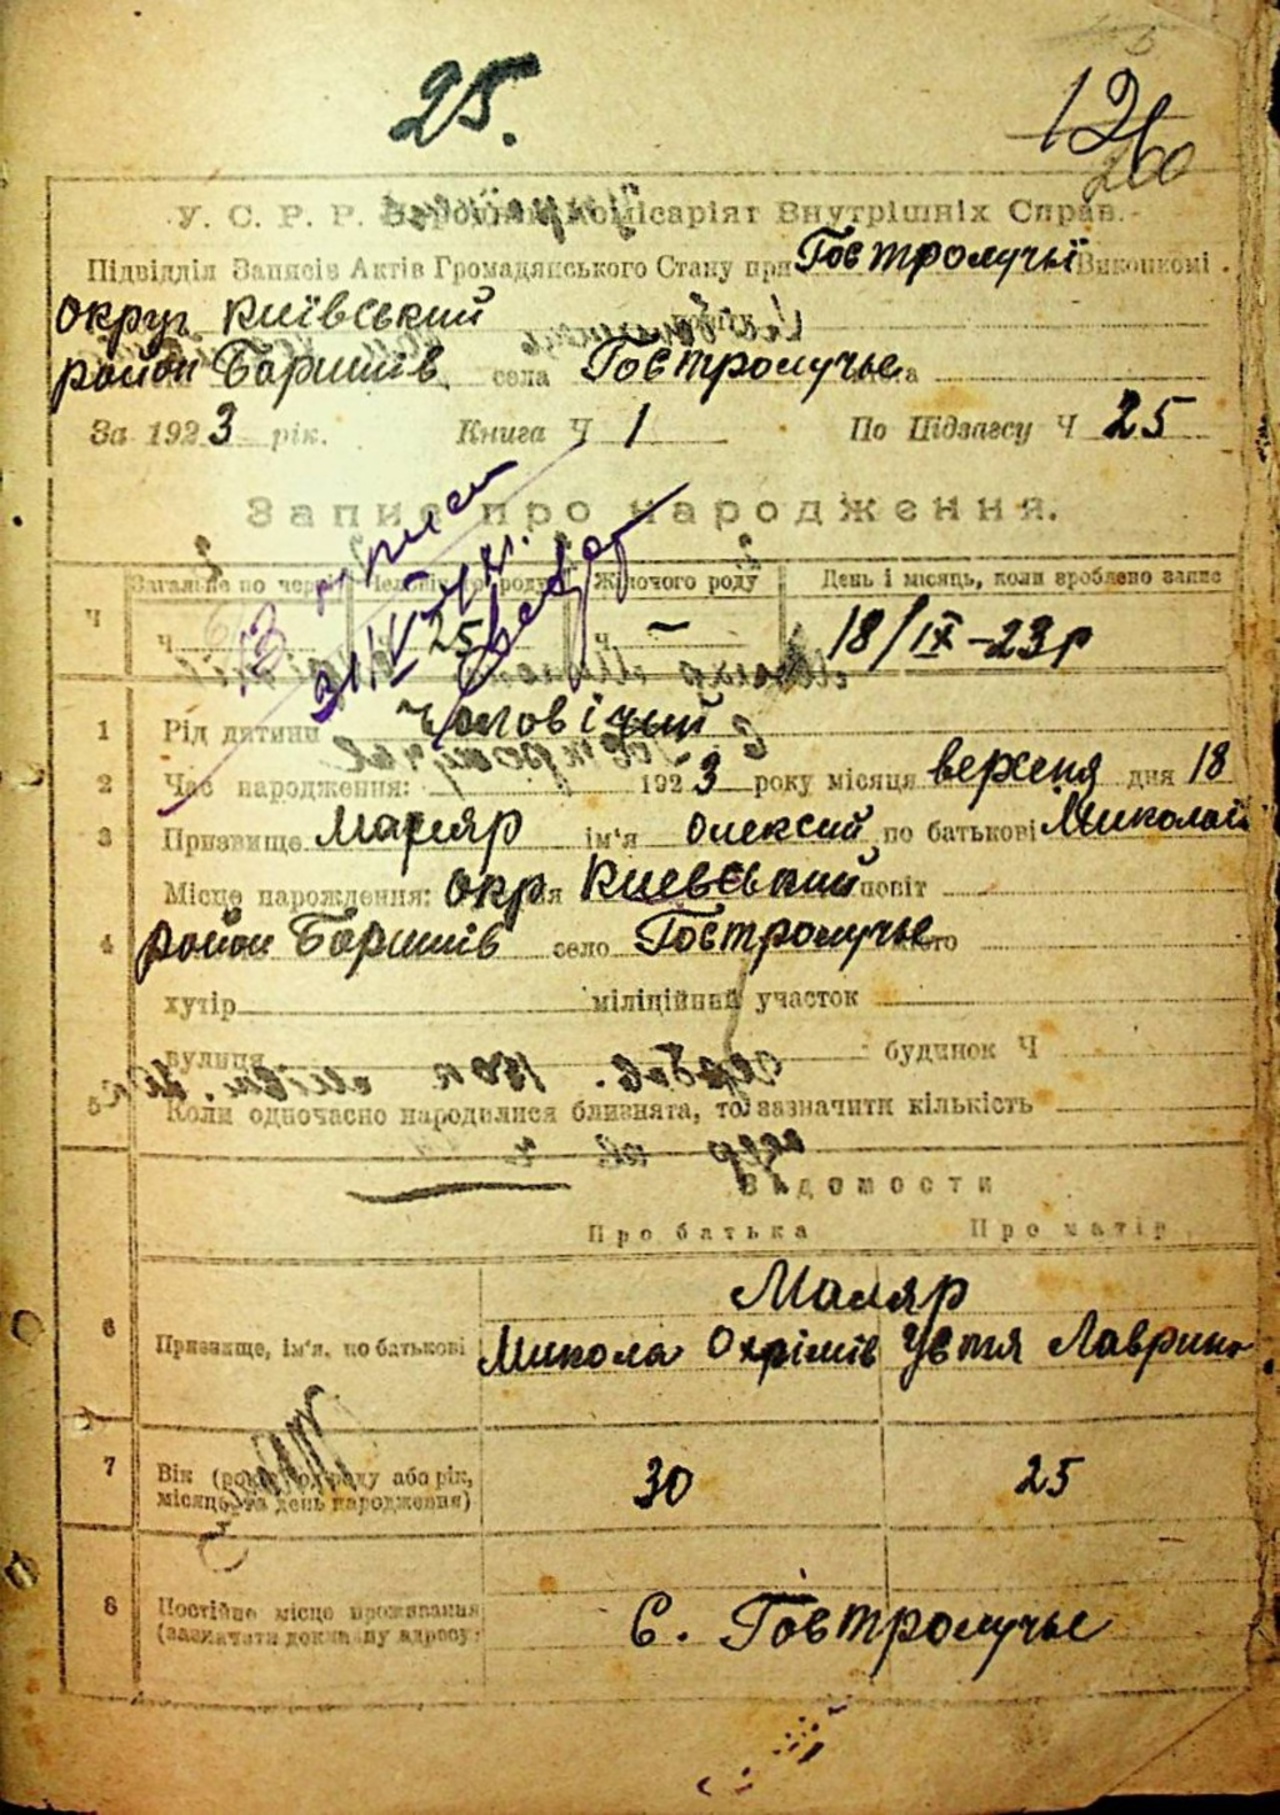 25.
12
200
У. С. Р. Р. Народній Комісаріят Внутрішніх Справ.
Підвідділ Записів Актів Громадянського Стану при Гостромучьї Виконкомі
округ Київський
район Баришів села Гостромучье
За 1923 рік. Книга Ч 1 По Підзагсу Ч 25
Запис про народження.
Загальне по черзі Чоловічого роду Жіночого роду День і місяць, коли зроблено запис
Ч Ч 25 Ч — 18/IX-23р
1 Рід дитини Чоловічий
2 Час народження: 1923 року місяця верхеня дня 18
3 Призвище Маляр ім'я Олексий по батькові Миколаїв
Місце народження: окр Киевський повіт
4 район Баришів село Гостромучье
хутір міліційний участок
вулиця будинок Ч
5 Коли одночасно народилися близнята, то зазначити кількість
Відомости
Про батька Про матір
Маляр
6 Призвище, ім'я, по батькові Микола Охрімів Устя Лаврин
7 Вік (років од роду або рік, 30 25
місяць та день народження)
8 Постійне місце проживання С. Гостромучье
(зазначати докладну адресу)